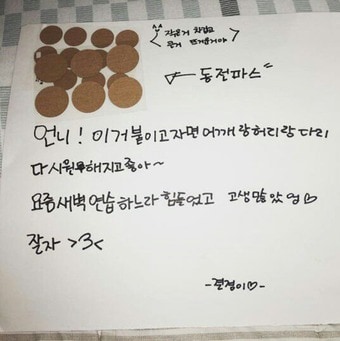 작은거 차갑고
큰거 뜨거운거야
동전파스
언니! 이거 붙이고 자면 어깨랑 허리랑 다리
다 시원해지고 좋아~
요즘 새벽 연습하느라 힘들었고 고생많았엉♡
잘자 >3<
-결경이♡-